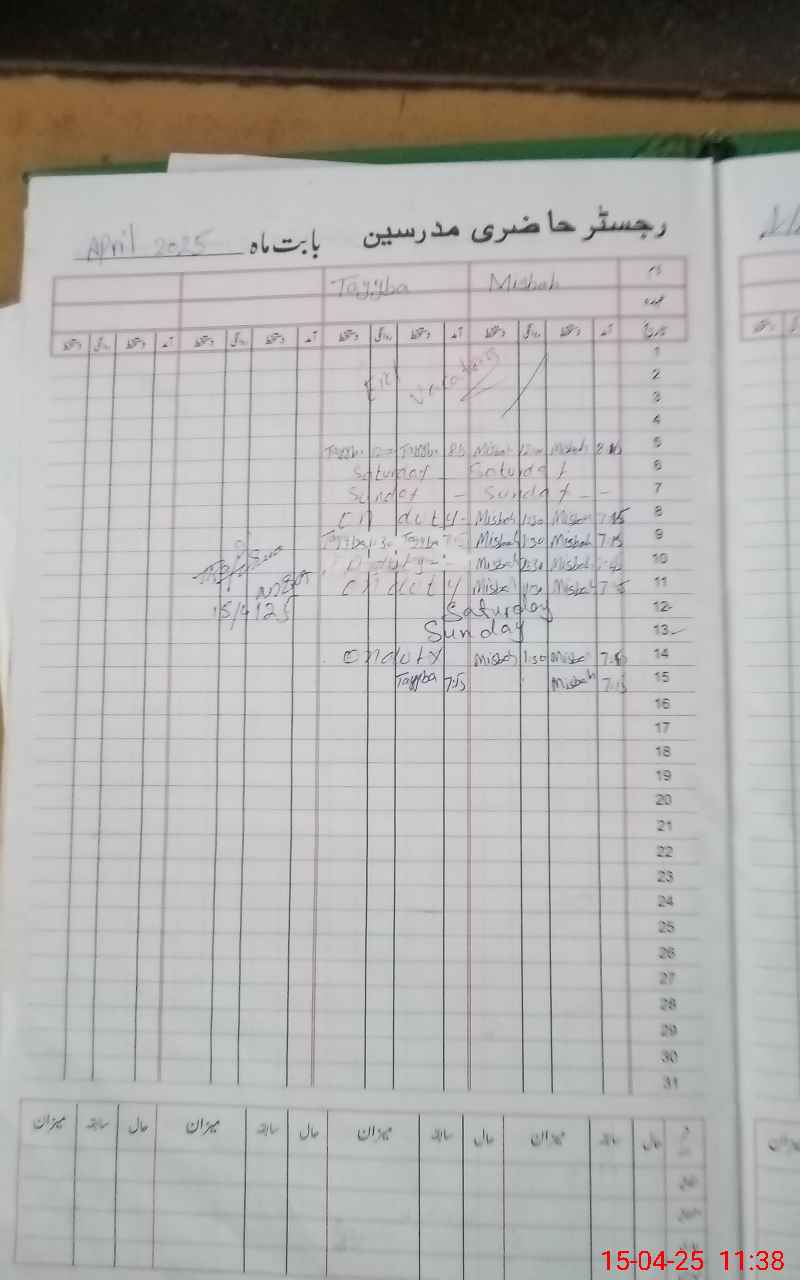 رجسٹر حاضری مدرسین بابت ماہ April 2025
نام Misbah Tayyba
عہدہ
تاریخ آمد دستخط روانگی دستخط آمد دستخط روانگی دستخط آمد دستخط روانگی دستخط آمد دستخط روانگی دستخط
1
2 Eid Vacations
3
4
5 Tayyba 12:00 Tayyba Misbah 12:00 Misbah
6 Saturday - Saturday
7 Sunday - Sunday - -
8 On duty - Misbah 1:30 Misbah 7:15
9 Tayyba 1:30 Tayyba Misbah 1:30 Misbah 7:15
10 Misbah Misbah
11 on duty Misbah 1:30 Misbah
15/4/25
12 Saturday
13 Sunday
14 on duty Misbah 1:30 Misbah
15 Tayyba 7:15 Misbah 7:15
16
17
18
19
20
21
22
23
24
25
26
27
28
29
30
31
حال سابقہ میزان حال سابقہ میزان حال سابقہ میزان حال سابقہ میزان
15-04-25 11:38